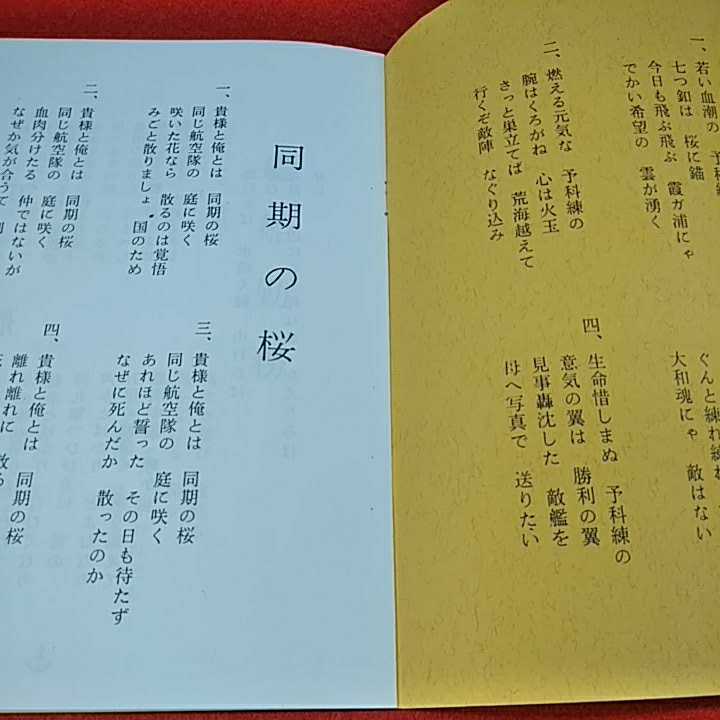 一、若い血潮の　予科練
七つ釦は　桜に錨
今日も飛ぶ飛ぶ　霞ガ浦にゃ
でかい希望の　雲が湧く
二、燃える元気な　予科練の
腕はくろがね　心は火玉
さっと巣立てば　荒海越えて
行くぞ敵陣　なぐり込み
ぐんと練れ練れ
大和魂にゃ　敵はない
四、生命惜しまぬ　予科練の
意気の翼は　勝利の翼
見事轟沈した　敵艦を
母へ写真で　送りたい
同期の桜
一、貴様と俺とは　同期の桜
同じ航空隊の　庭に咲く
咲いた花なら　散るのは覚悟
みごと散りましょ　国のため
二、貴様と俺とは　同期の桜
同じ航空隊の　庭に咲く
血肉分けたる　仲ではないが
なぜか気が合うて
三、貴様と俺とは　同期の桜
同じ航空隊の　庭に咲く
あれほど誓った　その日も待たず
なぜに死んだか　散ったのか
四、貴様と俺とは　同期の桜
離れ離れに　散ろ